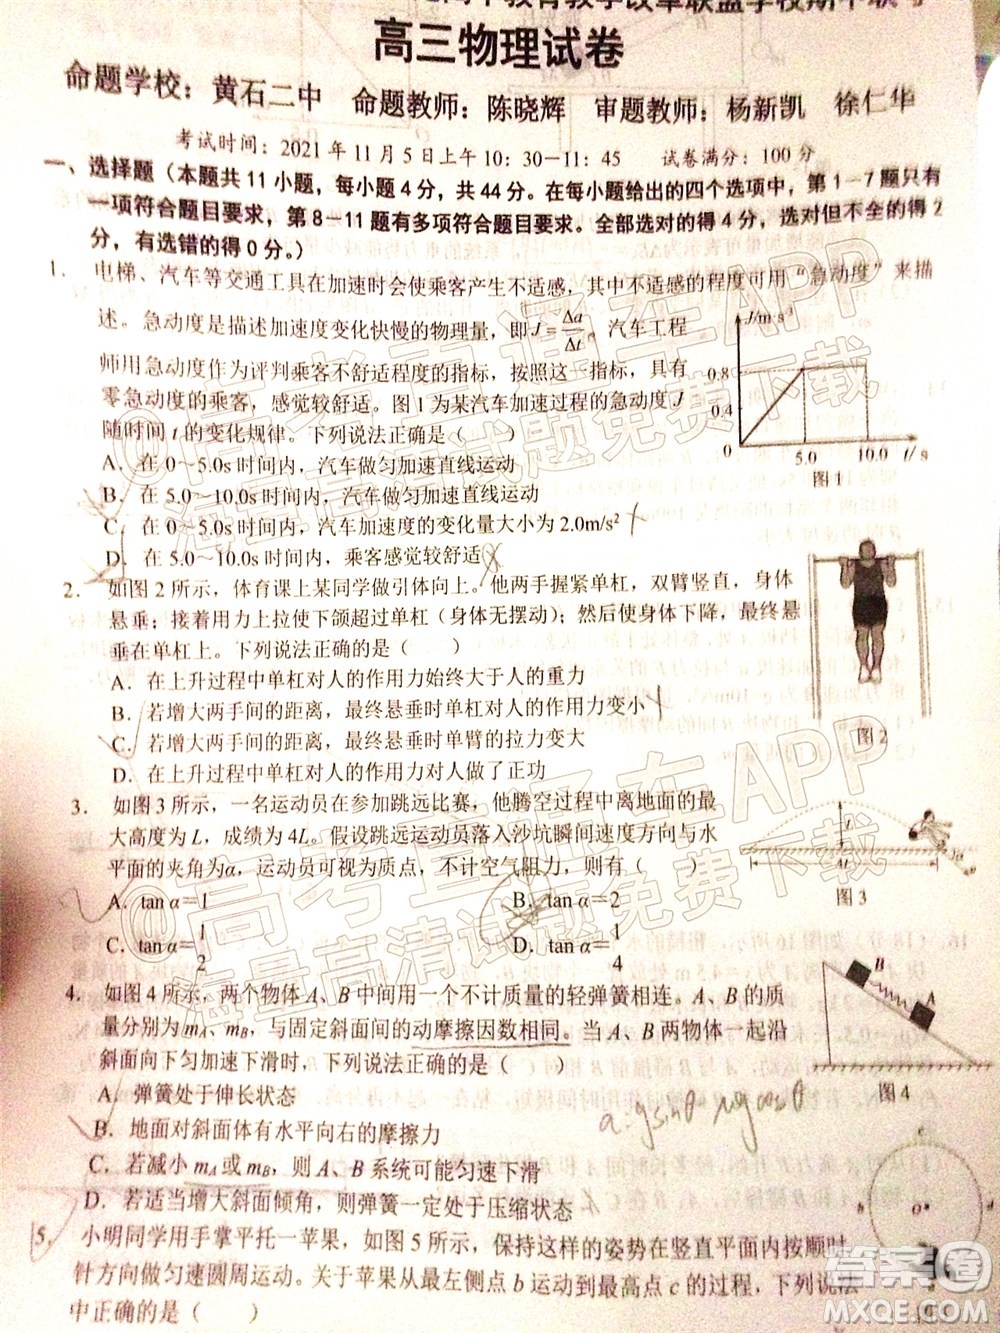 高三物理试卷
命题学校：黄石二中 命题教师：陈晓辉 审题教师：杨新凯 徐仁华
考试时间：2021年11月5日上午10：30—11：45 试卷满分：100分
一、选择题（本题共11小题，每小题4分，共44分。在每小题给出的四个选项中，第1—7题只有
一项符合题目要求，第8—11题有多项符合题目要求。全部选对的得4分，选对但不全的得2
分，有选错的得0分。）
1. 电梯、汽车等交通工具在加速时会使乘客产生不适感，其中不适感的程度可用“急动度”来描
述。急动度是描述加速度变化快慢的物理量，即J=Δa/Δt。汽车工程
师用急动度作为评判乘客不舒适程度的指标，按照这一指标，具有
零急动度的乘客，感觉较舒适。图1为某汽车加速过程的急动度J
随时间t的变化规律。下列说法正确的是（ ）
A．在0～5.0s时间内，汽车做匀加速直线运动
B．在5.0～10.0s时间内，汽车做匀加速直线运动
C．在0～5.0s时间内，汽车加速度的变化量大小为2.0m/s²
D．在5.0～10.0s时间内，乘客感觉较舒适
J/m·s⁻³
0.8
0.4
0 5.0 10.0 t/s
图1
2. 如图2所示，体育课上某同学做引体向上。他两手握紧单杠，双臂竖直，身体
悬垂；接着用力上拉使下颌超过单杠（身体无摆动）；然后使身体下降，最终悬
垂在单杠上。下列说法正确的是（ ）
A．在上升过程中单杠对人的作用力始终大于人的重力
B．若增大两手间的距离，最终悬垂时单杠对人的作用力变小
C．若增大两手间的距离，最终悬垂时单臂的拉力变大
D．在上升过程中单杠对人的作用力对人做正功
图2
3. 如图3所示，一名运动员在参加跳远比赛，他腾空过程中离地面的最
大高度为L，成绩为4L。假设跳远运动员落入沙坑瞬间速度方向与水
平面的夹角为α，运动员可视为质点，不计空气阻力，则有（ ）
A．tan α=1 B．tan α=2
C．tan α=1/2 D．tan α=1/4
图3
4. 如图4所示，两个物体A、B中间用一个不计质量的轻弹簧相连。A、B的质
量分别为mA、mB，与固定斜面间的动摩擦因数相同。当A、B两物体一起沿
斜面向下匀加速下滑时，下列说法正确的是（ ）
A．弹簧处于伸长状态
B．地面对斜面体有水平向右的摩擦力
C．若减小mA或mB，则A、B系统可能匀速下滑
D．若适当增大斜面倾角，则弹簧一定处于压缩状态
B
A
图4
5. 小明同学用手掌平托一苹果，如图5所示，保持这样的姿势在竖直平面内按顺时
针方向做匀速圆周运动。关于苹果从最左侧点b运动到最高点c的过程，下列说法
中正确的是（ ）
c
b O d
@高考直通车APP
海量高清试题免费下载
@高考直通车APP
海量高清试题免费下载
答案圈
MXQE.COM